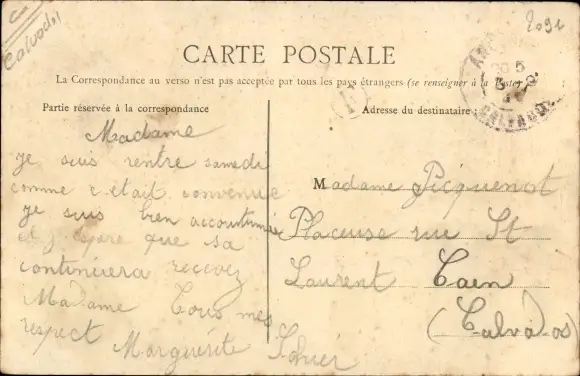 Calvados
2091
CARTE POSTALE
La Correspondance au verso n'est pas acceptée par tous les pays étrangers (se renseigner à la Poste)
Partie réservée à la correspondance
Adresse du destinataire
Madame
je suis rentre samedi
comme c etait convenue
je suis bien accoutumée
et j espere que sa
continuera recevez
Madame tous mes
respect Marguerite
Madame Picquenot
Placeuse rue St
Laurent Caen
(Calvados)
CALVADOS